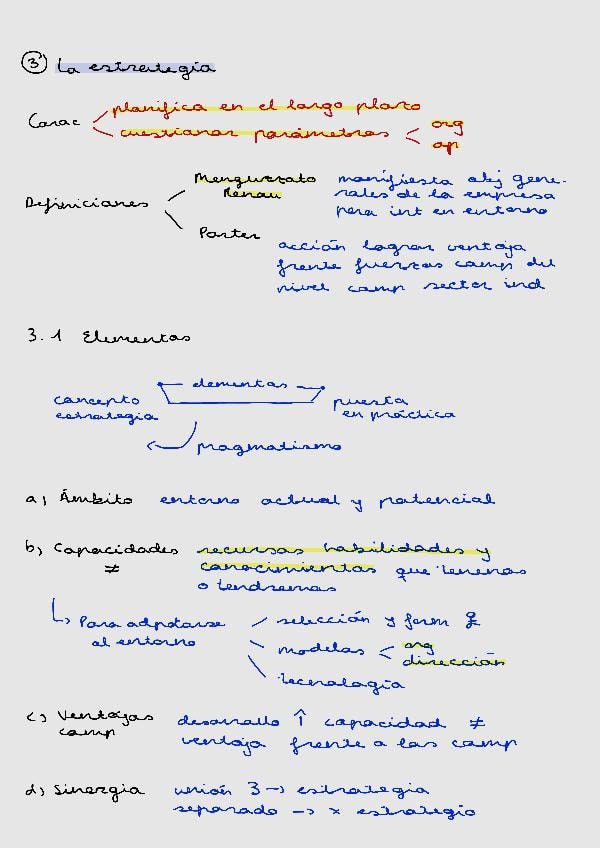 3 La estrategia
Carac planifica en el largo plazo
cuestionar parámetros org
op
Definiciones Menguzzato Renau manifiesta obj gene-
rales de la empresa
para int en entorno
Porter
acción lograr ventaja
frente fuerzas comp del
nivel comp sector ind
3.1 Elementos
elementos
concepto estrategia
puesta en práctica
pragmatismo
a) Ámbito entorno actual y potencial
b) Capacidades recursos habilidades y
≠ conocimientos que tenemos
o tendremos
↳ Para adptarse selección y form
al entorno modelos org
dirección
tecnología
c) Ventajas desarrollo ↑ capacidad ≠
comp ventaja frente a los comp
d) Sinergia unión 3 → estrategia
separado → x estrategia